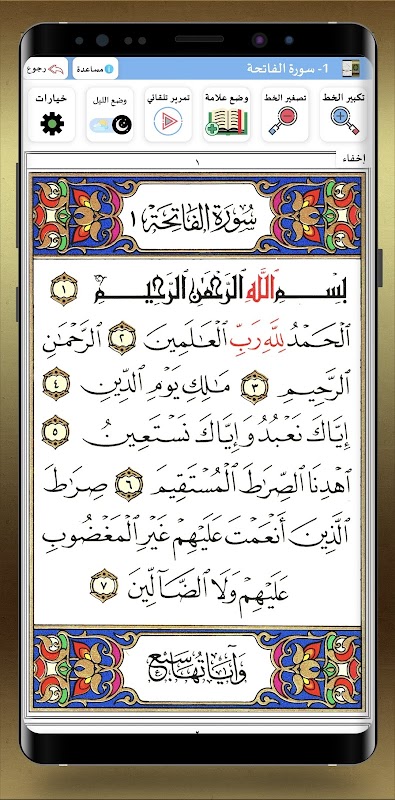 1- سورة الفاتحة
مساعدة
رجوع
تكبير الخط
تصغير الخط
وضع علامة
تمرير تلقائي
وضع الليل
خيارات
إخفاء
١
سُورَةُ الفَاتِحَة ١
بِسْمِ ٱللَّهِ ٱلرَّحْمَٰنِ ٱلرَّحِيمِ ١
ٱلْحَمْدُ لِلَّهِ رَبِّ ٱلْعَٰلَمِينَ ٢ ٱلرَّحْمَٰنِ
ٱلرَّحِيمِ ٣ مَٰلِكِ يَوْمِ ٱلدِّينِ ٤
إِيَّاكَ نَعْبُدُ وَإِيَّاكَ نَسْتَعِينُ ٥
ٱهْدِنَا ٱلصِّرَٰطَ ٱلْمُسْتَقِيمَ ٦ صِرَٰطَ
ٱلَّذِينَ أَنْعَمْتَ عَلَيْهِمْ غَيْرِ ٱلْمَغْضُوبِ
عَلَيْهِمْ وَلَا ٱلضَّآلِّينَ ٧
وَآيَاتُهَا سَبْعٌ
٢